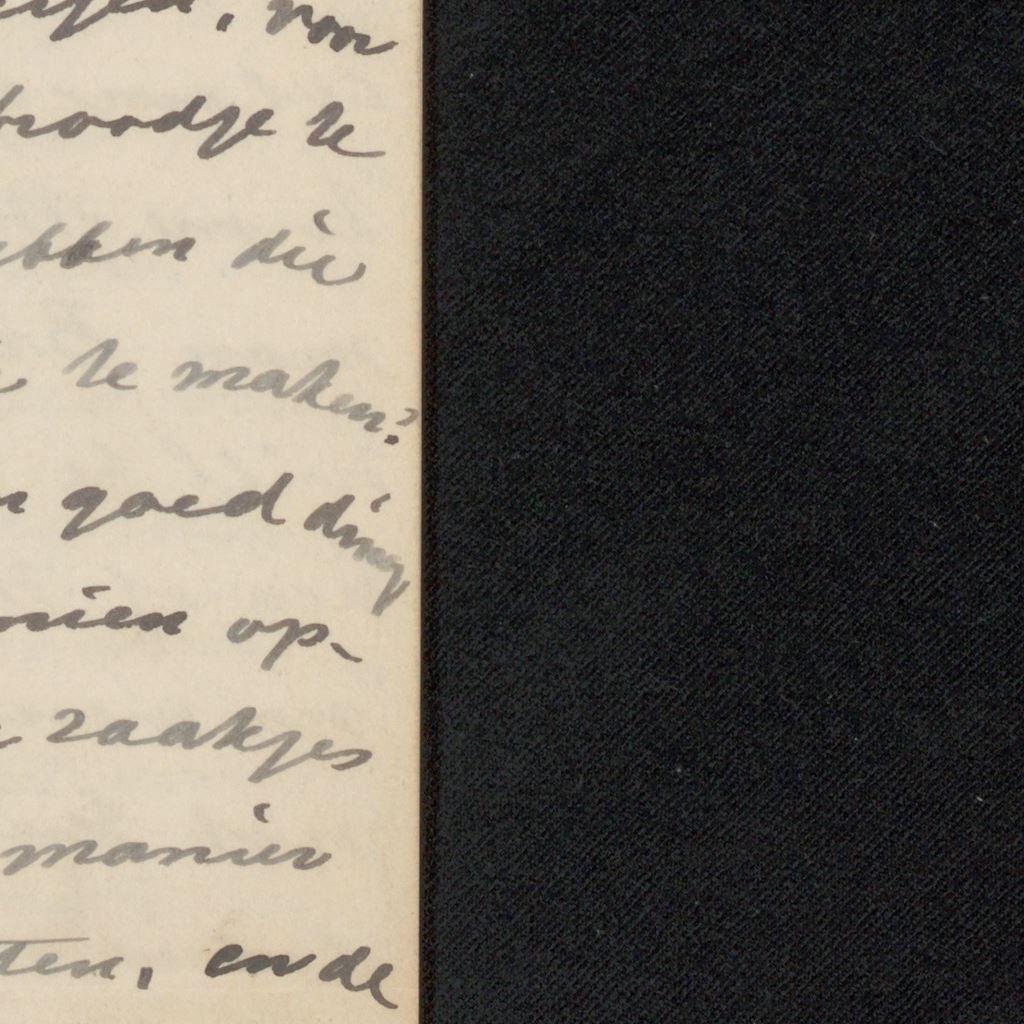 voor
broodje te
ebben die
te maken?
goed ding
op-
zaakjes
manier
ten, en de